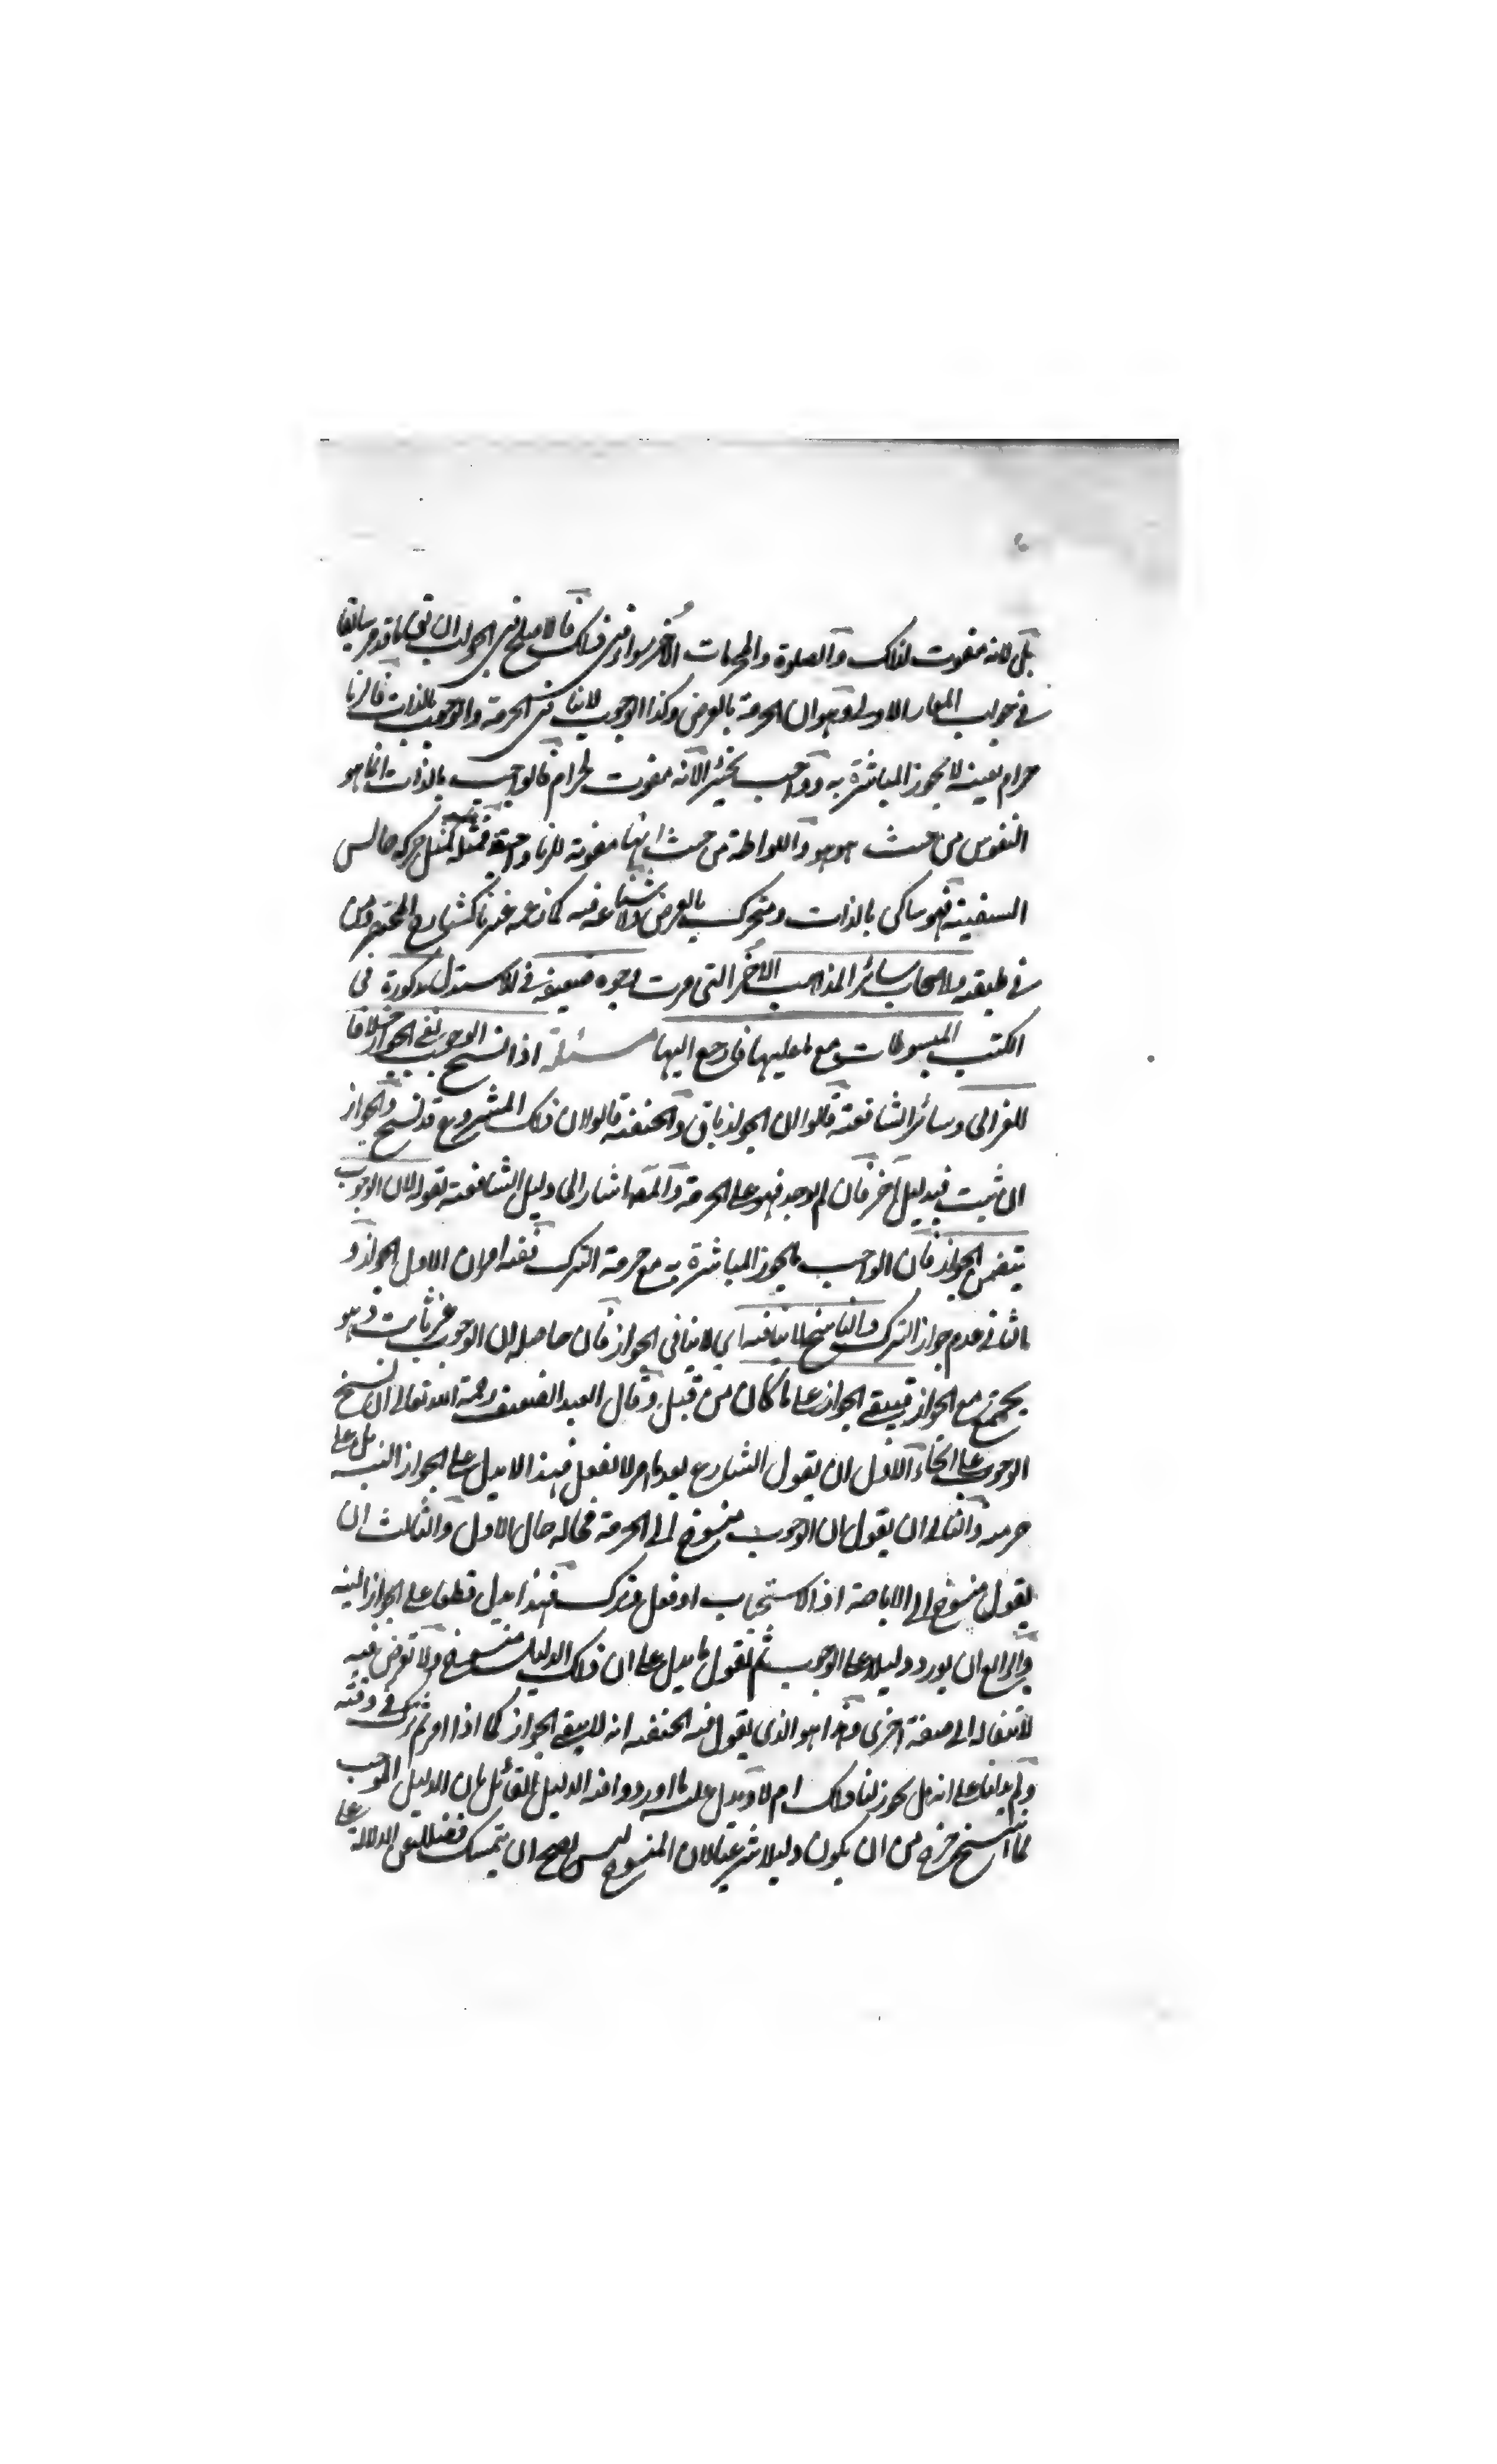 بل لانه مفوت لذلك والصلوة والمحرمات الأخر سواء في ذلك فالاصلح في الجواب ان يق ما قد مر سابقا
في جواب المعارـ الاولى وهو ان الحرمة بالعرض وكذا الوجوب لا ينافي الحرمة والوجوب بالذات فالزنا
حرام بعينه لا يجوز المباشرة به وواجب تخييرا لانه مفوت لحرام فالواجب بالذات انما هو
النفوس من حيث هو هو واللواطة من حيث انها مفوتة للزنا واجبة فمثله كمثل حركة جالس
السفينة فهو ساكن بالذات ومتحرك بالعرض ولا شناعة فيه كما زعمه غير ناكشارح المختصر ومن
في طبقته ولاصحاب سائر المذاهب الأخر التي مرت وجوه ضعيفة في الاستدلال مذكورة في
الكتب المبسوطات مع ما عليها فارجع اليها مسئلة اذا نسخ الوجوب بقي الجواز خلافا
للغزالي وسائر الشافعية قالوا ان الجواز باق والحنفية قالوا لان ذلك المشروع قد نسخ والجواز
ان ثبت فبدليل آخر فان لم يوجد فهو على الحرمة والمصـ اشار الى دليل الشافعية بقوله لان الوجوب
يتضمن الجواز فان الواجب ما يجوز المباشرة به مع حرمة الترك ففيه امران الاول الجواز و
الثاني عدم جواز الترك والناسخ لا ينافيه اي لا ينافي الجواز فان حاصله ان الوجوب غير ثابت وهو
يجتمع مع الجواز فيبقى الجواز على ما كان من قبل وقال العبد الضعيف رحمة الله تعالى ان نسخ
الوجوب على انحاء الاول ان يقول الشارع بعد ما امر لا تفعل فهذا لا يدل على الجواز البتة بل على
حرمته والثاني ان يقول ان الوجوب منسوخ الى الحرمة فحاله حال الاول والثالث ان
يقول منسوخ الى الاباحة او الاستحباب او فعل وترك فهذا يدل قطعا على الجواز البتة
والرابع ان يورد دليلا على الوجوب ثم يقول ما يدل على ان ذلك الدليل منسوخ ولا تعرض فيه
لانتقاله الى صفة اخرى وهذا هو الذي يقول فيه الحنفية انه لا يبقى الجواز كما اذا امر ثم ترك في وقته
ولم يدلنا على انه هل يجوز لنا ذلك ام لا ويدل عليه ما اوردوا فيه الدليل القائل بان الدليل الموجب
لما انتسخ خرج من ان يكون دليلا شرعيا لان المنسوخ ليس يصح ان يتمسك به فضلا عن الدلالة على